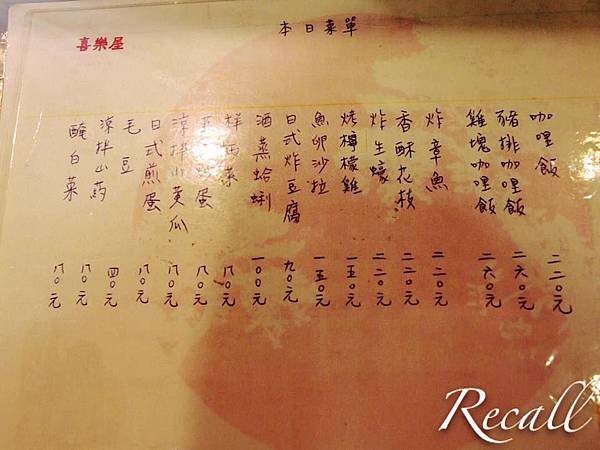 喜樂屋
本日菜單
咖哩飯 二二〇元
豬排咖哩飯 二六〇元
雞塊咖哩飯 二六〇元
炸章魚 二二〇元
香酥花枝 二二〇元
炸生蠔 二二〇元
烤檸檬雞 一五〇元
魚卵沙拉 一五〇元
日式炸豆腐 九〇元
酒蒸蛤蜊 一〇〇元
菜 八〇元
蛋 八〇元
涼拌小黃瓜 八〇元
日式煎蛋 八〇元
毛豆 四〇元
涼拌山药 八〇元
醃白菜 八〇元
Recall